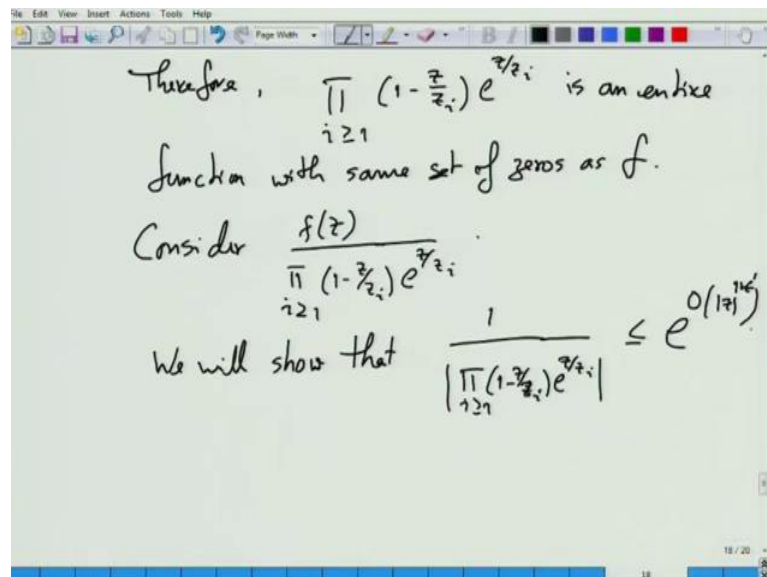 File Edit View Insert Actions Tools Help
Page Width
Therefore, ∏_{i≥1} (1 - z/z_i) e^{z/z_i} is an entire
function with same set of zeros as f.
Consider f(z) / ∏_{i≥1} (1 - z/z_i) e^{z/z_i} .
We will show that 1 / |∏_{i≥1} (1 - z/z_i) e^{z/z_i}| ≤ e^{O(|z|^{1+ε'})}
18 / 20
18